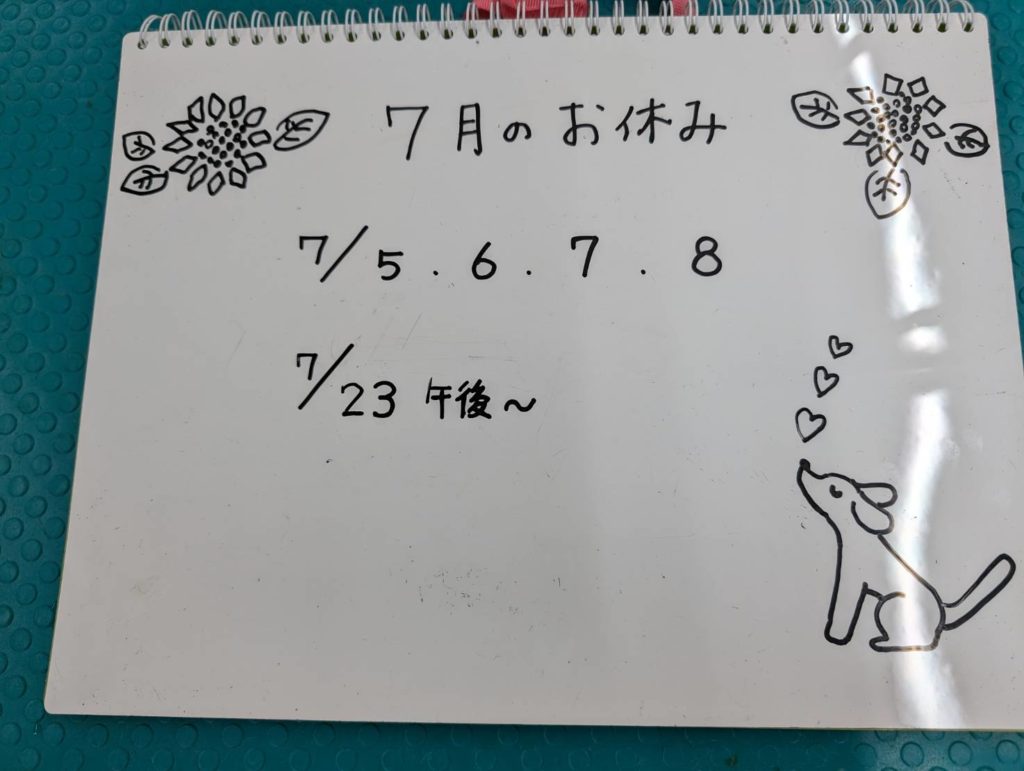 7月のお休み
7/5.6.7.8
7/23 午後~